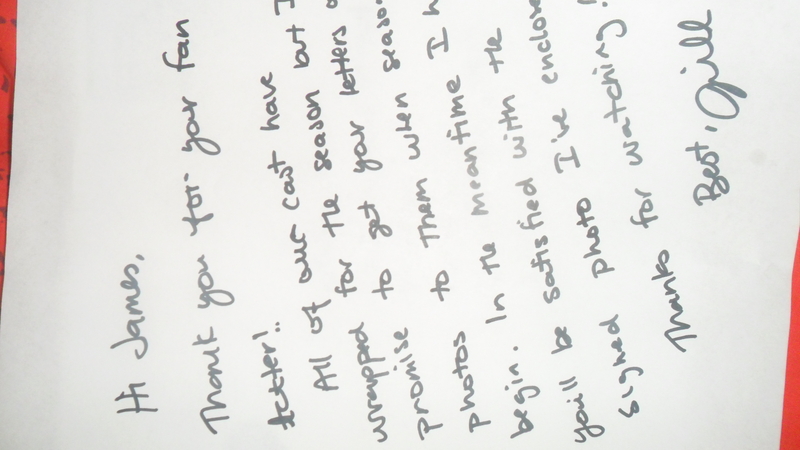 Hi James,
Thank you for your fan
letter!
All of our cast have
wrapped for the season but I
promise to get your letters
photos to them when season
begin. In the meantime I h
you'll be satisfied with the
signed photo I've enclose
Thanks for watching!
Best, Jill